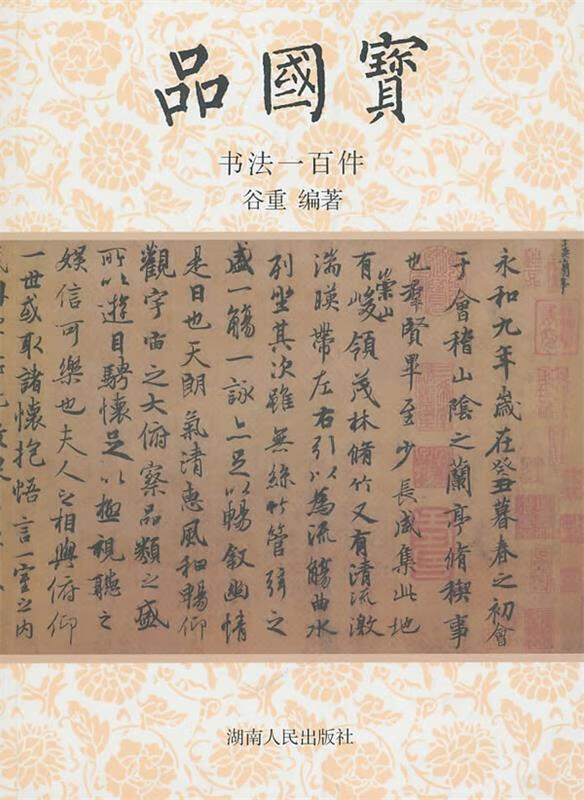 品國寶
书法一百件
谷重 编著
永和九年歲在癸丑暮春之初會
于會稽山陰之蘭亭脩稧事
也羣賢畢至少長咸集此地
有崇山峻領茂林脩竹又有清流激
湍暎帶左右引以為流觴曲水
列坐其次雖無絲竹管弦之
盛一觴一詠亦足以暢敘幽情
是日也天朗氣清惠風和暢仰
觀宇宙之大俯察品類之盛
所以遊目騁懷足以極視聽之
娛信可樂也夫人之相與俯仰
一世或取諸懷抱悟言一室之內
湖南人民出版社